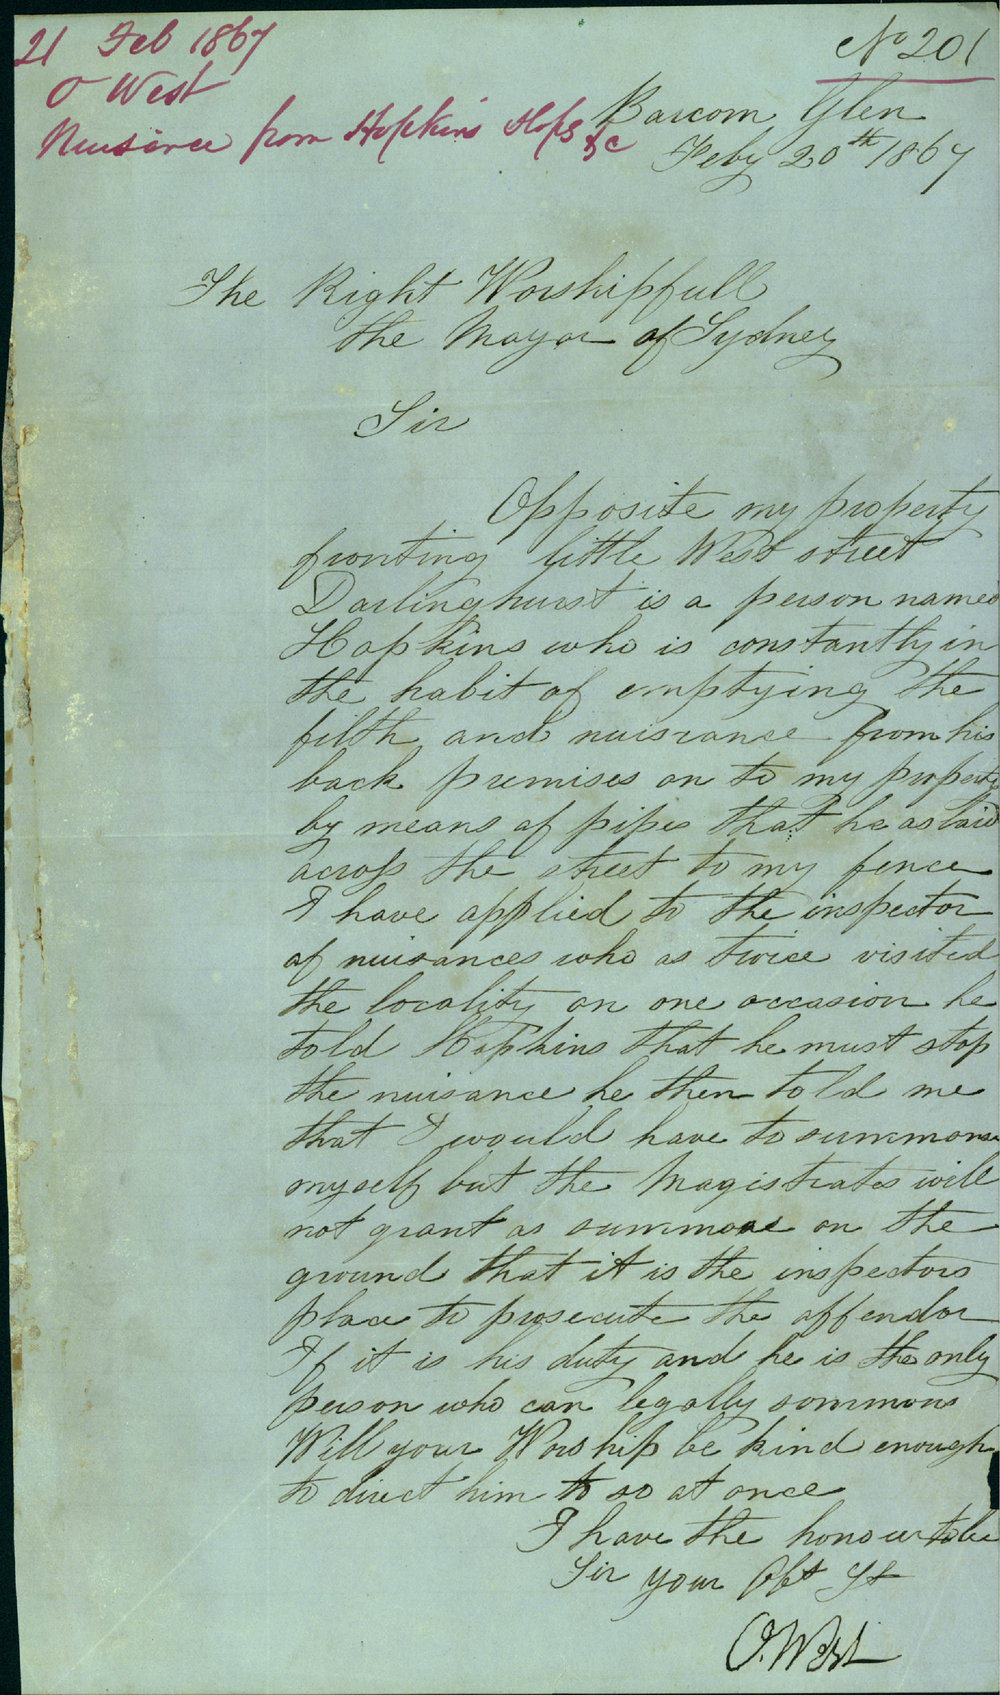 21 Feb 1867
O West
Nuisance from Hopkins Slops &c
No 201
Barcom Glen
Feby 20th 1867
The Right Worshipfull
the Mayor of Sydney
Sir
Opposite my property
fronting little West street
Darlinghurst is a person named
Hopkins who is constantly in
the habit of emptying the
filth and nuisance from his
back premises on to my property
by means of pipes that he as laid
across the street to my fence
I have applied to the inspector
of nuisances who as twice visited
the locality on one occasion he
told Hopkins that he must stop
the nuisance he then told me
that I would have to summons
myself but the Magistrates will
not grant as summons on the
ground that it is the inspectors
place to prosecute the offendor
If it is his duty and he is the only
person who can legally sommons
Will your Worship be kind enough
to direct him to so at once
I have the honour to be
Sir your Obt St
O. West